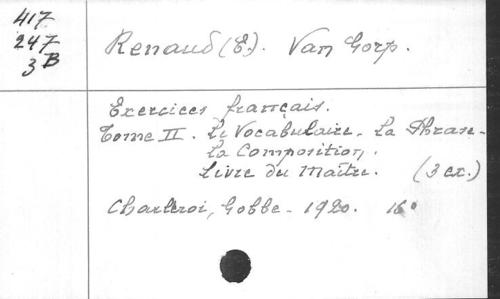 417
247
3B
Renaud (E). Van Gorp.
Exercices français.
Tome II. Le Vocabulaire. La Phrase.
La Composition.
Livre du Maître. (3 ex.)
Charleroi, Gobbe - 1920. 16°